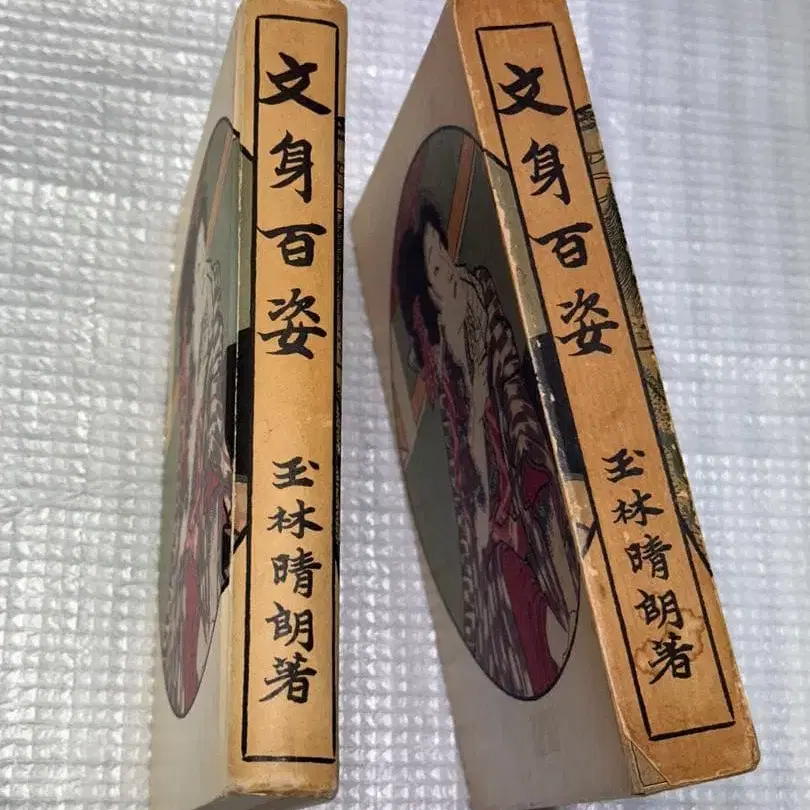 文身百姿
玉林晴朗著
文身百姿
玉林晴朗著